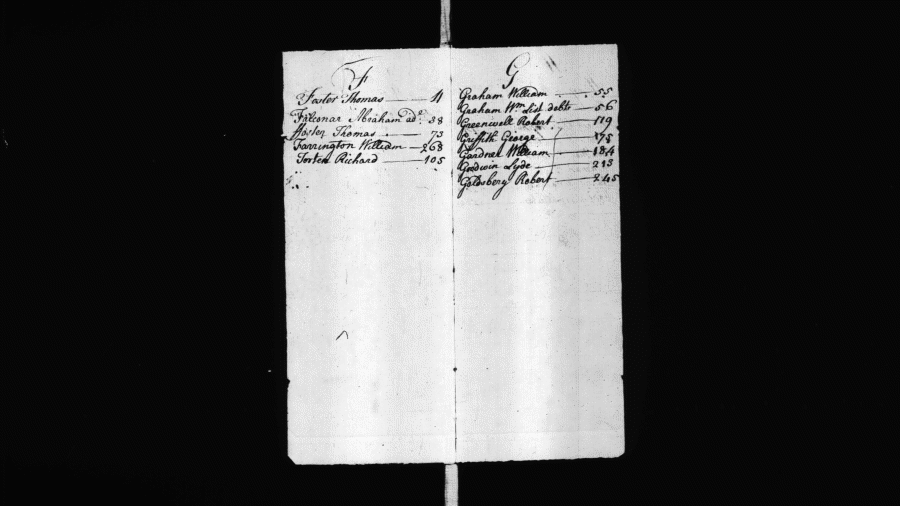 F
Foster Thomas 4
Falconar Abraham ad.r 38
Foster Thomas 73
Farrington William 268
Forten Richard 105
G
Graham William 55
Graham Wm. List debts 56
Greenwell Robert 119
Griffith George 175
Gardner William 184
Goodwin Lyde 213
Goldsbery Robert 245